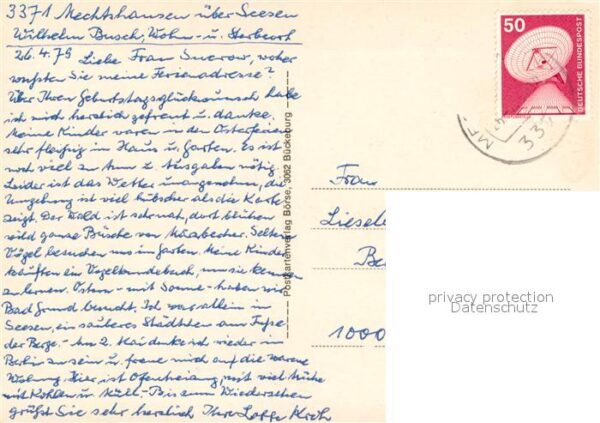 3371 Mechtshausen über Seesen
Wilhelm Busch, Wohn- u. Sterbeort
26.4.79 Liebe Frau Suerow, woher
wußten Sie meine Ferienadresse?
Über Ihren Geburtstagsglückwunsch habe
ich mich herzlich gefreut u. danke.
Meine Kinder waren in den Osterferien
sehr fleißig im Haus u. Garten. Es ist
noch viel zu tun u. Ausgaben nötig.
Leider ist das Wetter unangenehm, die
Umgebung ist viel hübscher als die Karte
zeigt. Der Wald ist sehr nah, dort blühen
wild ganze Büsche von Märzbecher. Selten
Vögel besuchen uns im Garten. Meine Kinder
kauften ein Vogelkundebuch, um sie kennen
zu lernen. Ostern - mit Sonne - haben wir
Bad Grund besucht. Ich war allein in
Seesen, ein sauberes Städtchen am Fuße
der Berge. - Am 2. Mai denke ich wieder in
Berlin zu sein u. freue mich auf die warme
Wohnung. Hier ist Ofenheizung, mit viel Mühe
mit Kohlen u. Müll. - Bis zum Wiedersehen
grüßt Sie sehr herzlich Ihre Lotte
Postkartenverlag Börse, 3062 Bückeburg
50
DEUTSCHE BUNDESPOST
Frau
Liesel
Be
1000
privacy protection
Datenschutz